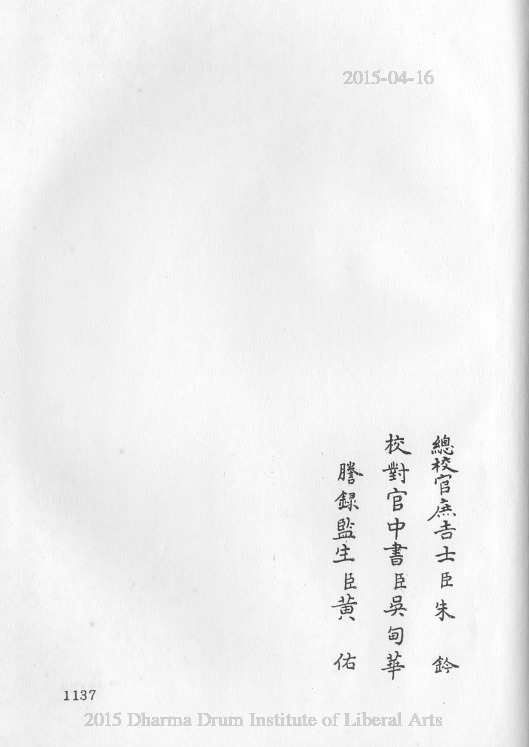 2015-04-16
總校官庶吉士臣朱鈐
校對官中書臣吳甸華
謄録監生臣黃佑
1137
2015 Dharma Drum Institute of Liberal Arts